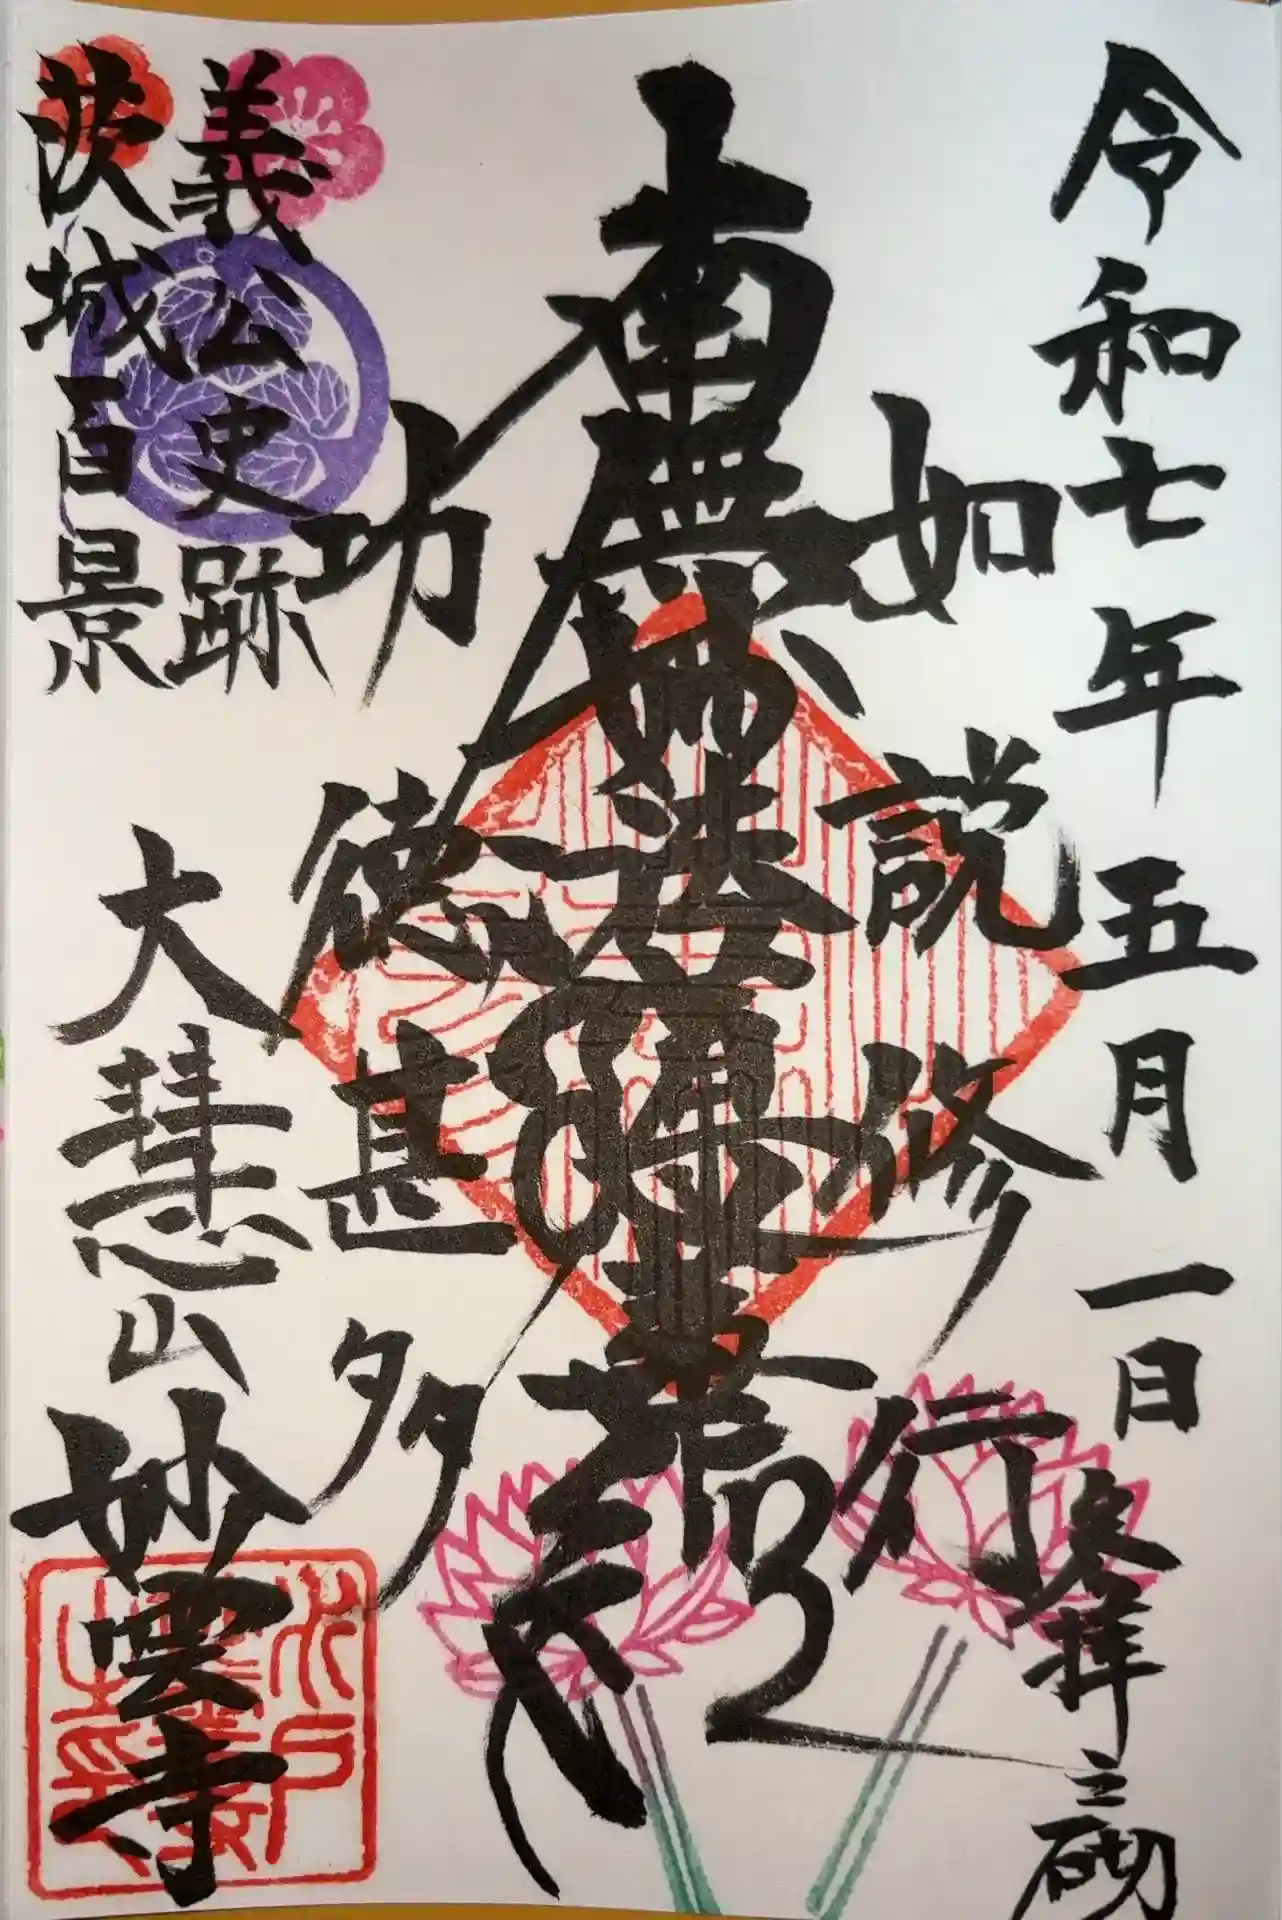 令和七年五月一日来拝之砌
如説修行
南無妙法蓮華経
功徳甚多
義公史跡
茨城百景
大慧山妙雲寺